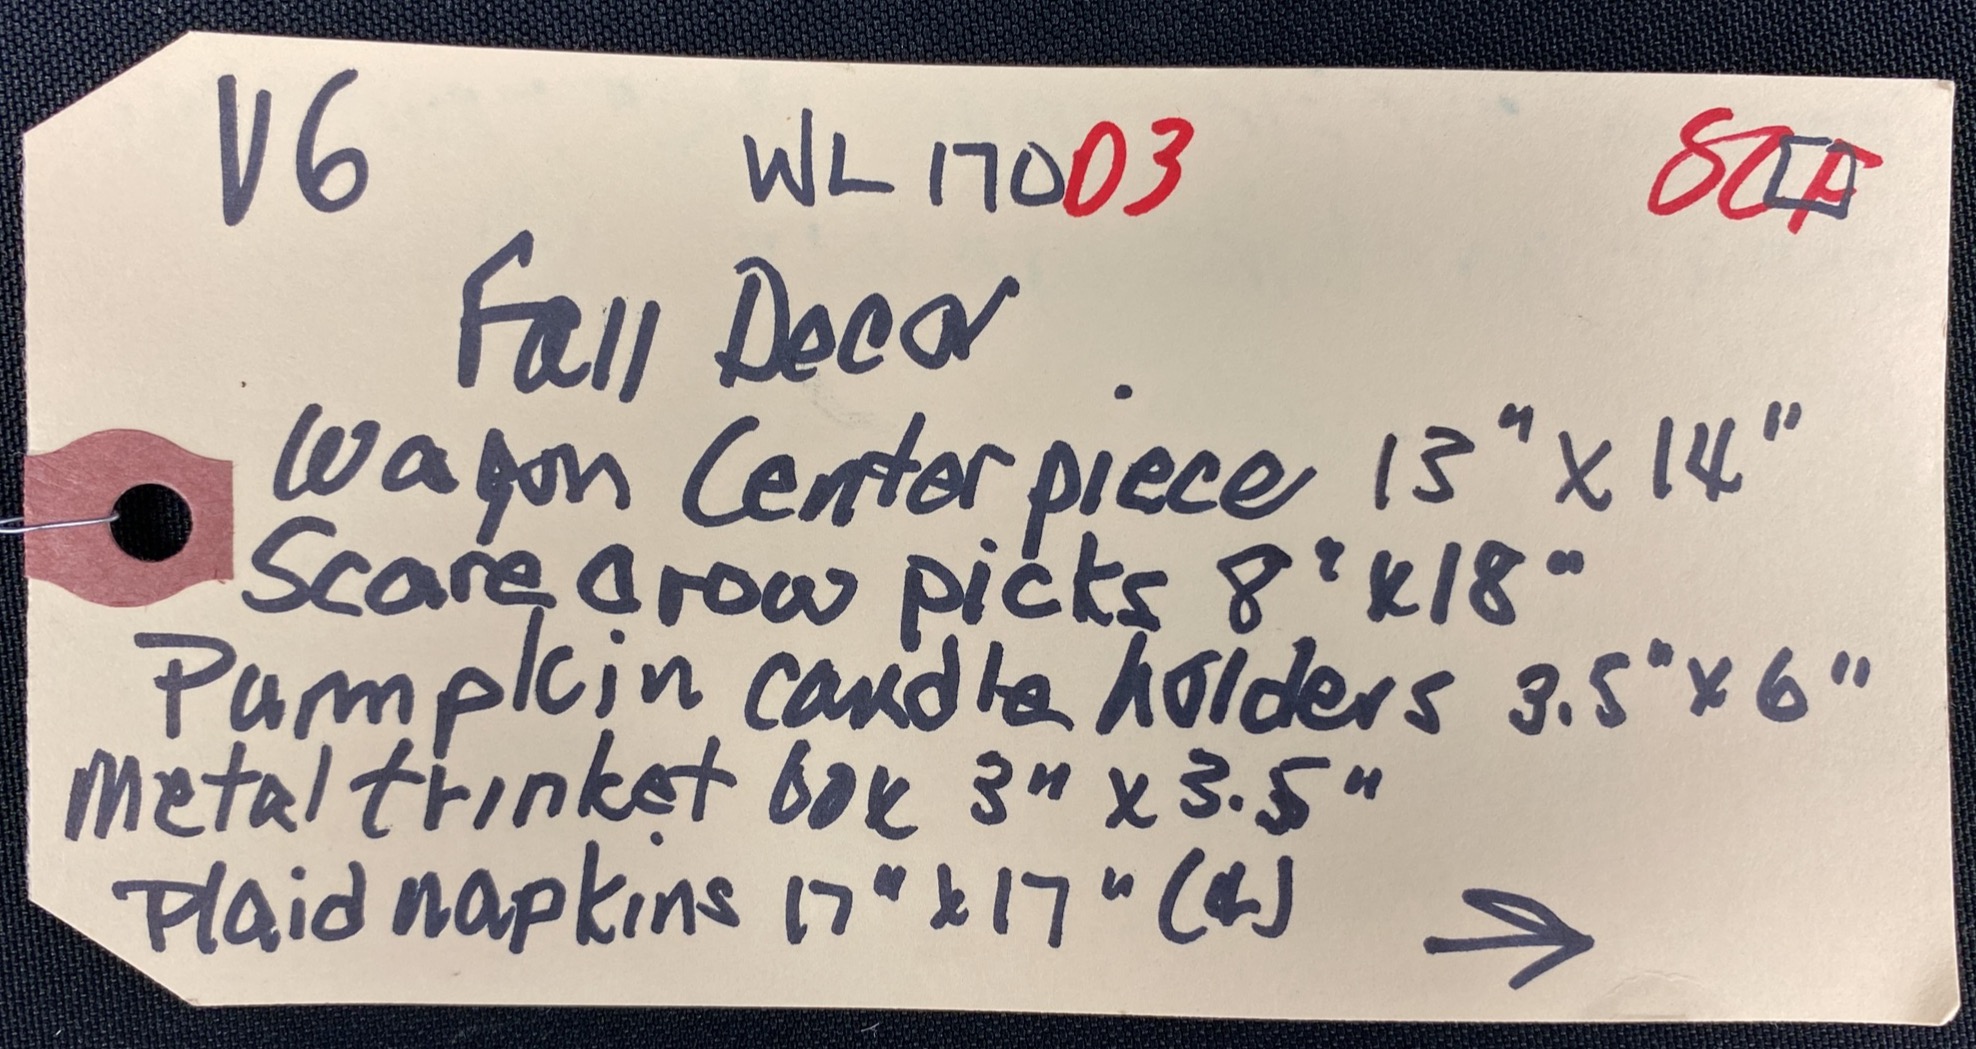 V6 WL 170D3
Fall Decor
Wagon Centerpiece 13" x 14"
Scarecrow picks 8" x 18"
Pumpkin candle holders 3.5" x 6"
Metal trinket box 3" x 3.5"
Plaid napkins 17" x 17"